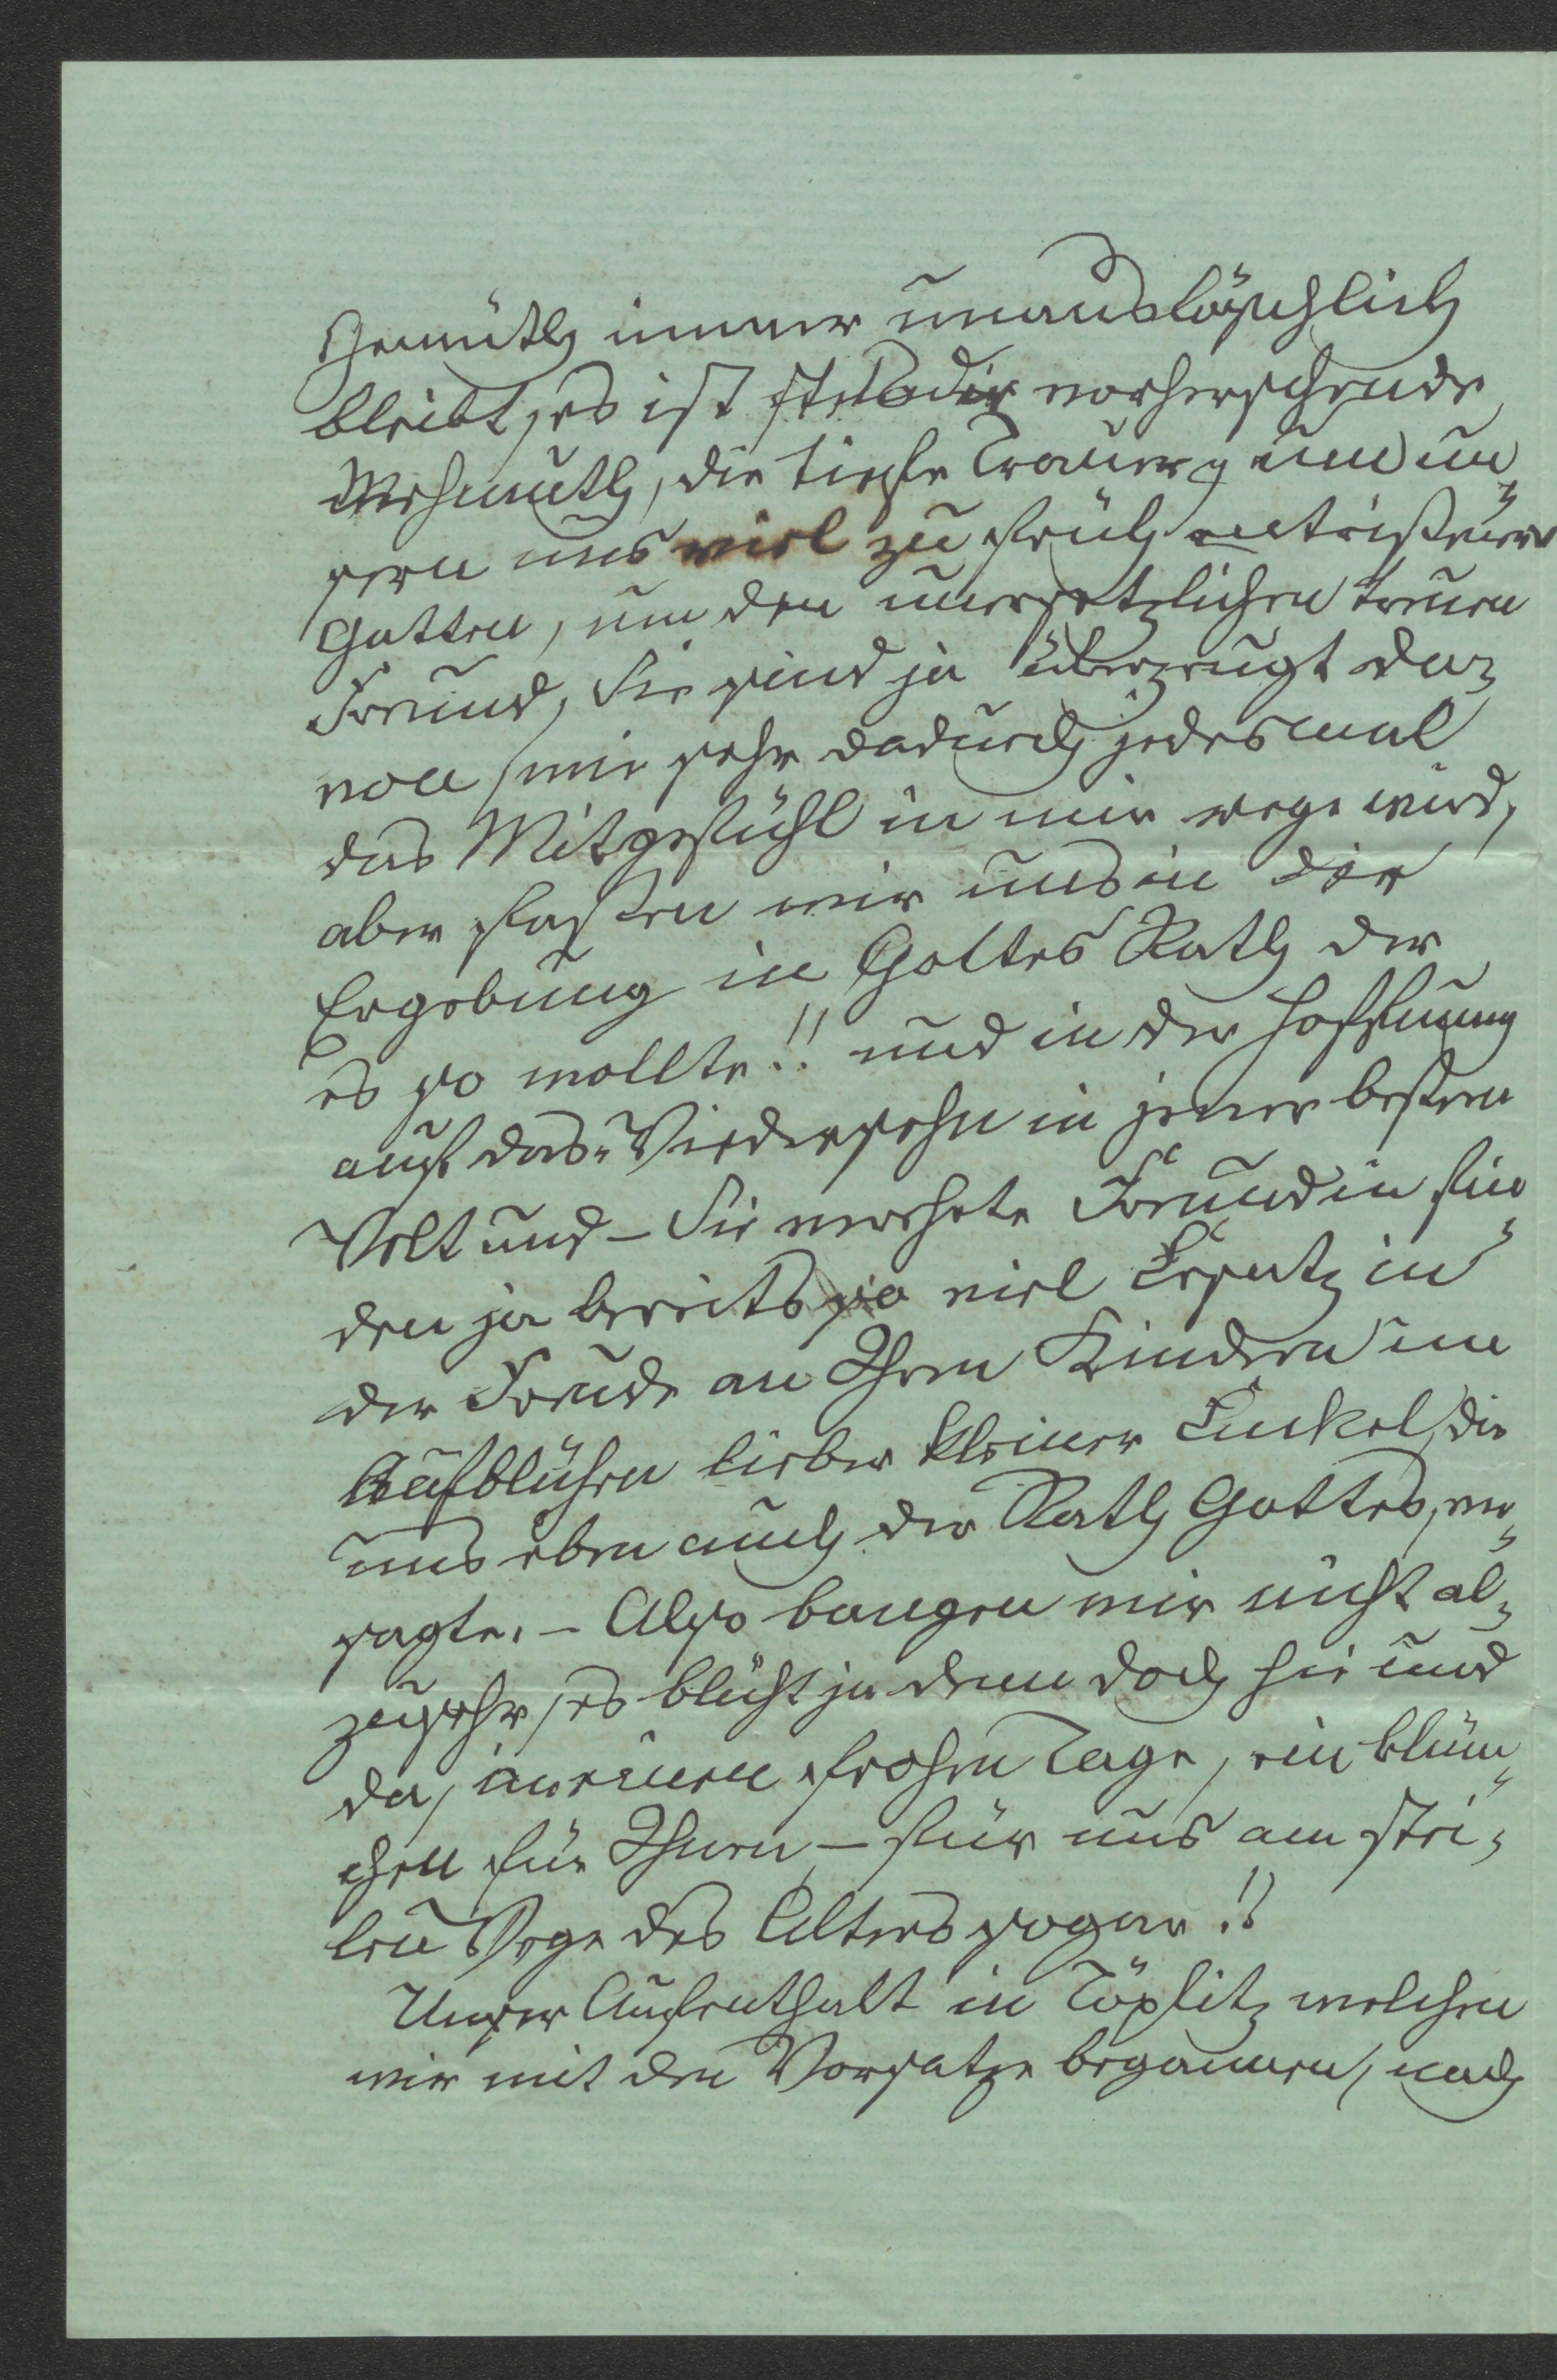 Gemüth immer unauslöschlich
bleibt, es ist stets die vorherschende
Wehmuth, die tiefe Trauer, um un„
sern uns viel zu früh entrißenen
Gatten, um den unersetzlichen treuen
Freund, Sie sind ja überzeugt da„
von, wie sehr dadurch jedesmal
das Mitgefühl in mir rege wird,
aber faßen wir uns in der
Ergebung in Gottes Rath der
es so wollte!! und in der Hoffnung
auf das Wiedersehn in jener beßern
Welt und – Sie verehrte Freundin fin„
den ja bereits so viel Ersatz in
der Freude an Ihren Kindern im
Aufblühen lieber kleiner Enkel, die
uns eben auch der Rath Gottes, ver„
sagte. – Also bangen wir nicht al„
zusehr, es blüht ja denn doch hie und
da, in einem frohen Tage, ein blüm„
chen für Ihnen – für uns am stei„
len Wege des Alters sogar!!
Unser Aufenthalt in Töplitz welchen
wir mit den Vorsatze begannen, nach